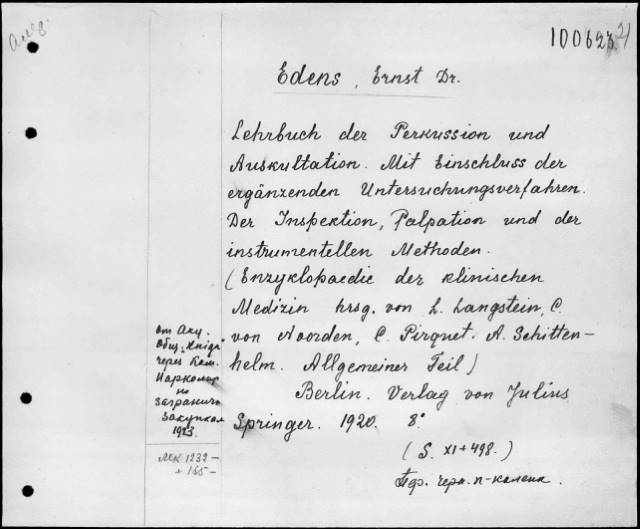 100623
Edens, Ernst Dr.
Lehrbuch der Perkussion und
Auskultation. Mit Einschluss der
ergänzenden Untersuchungsverfahren.
Der Inspektion, Palpation und der
instrumentellen Methoden.
(Enzyklopaedie der klinischen
Medizin hrsg. von L. Langstein, C.
von Noorden, C. Pirquet. A. Schitten-
helm. Allgemeiner Teil)
Berlin. Verlag von Julius
Springer. 1920. 8°
(S. XI+498.)
от Акц.
Общ. „Книга"
через Ком.
Наркомпр
по
загранич
закупкам
1923.
MK 1232-
+ 165-